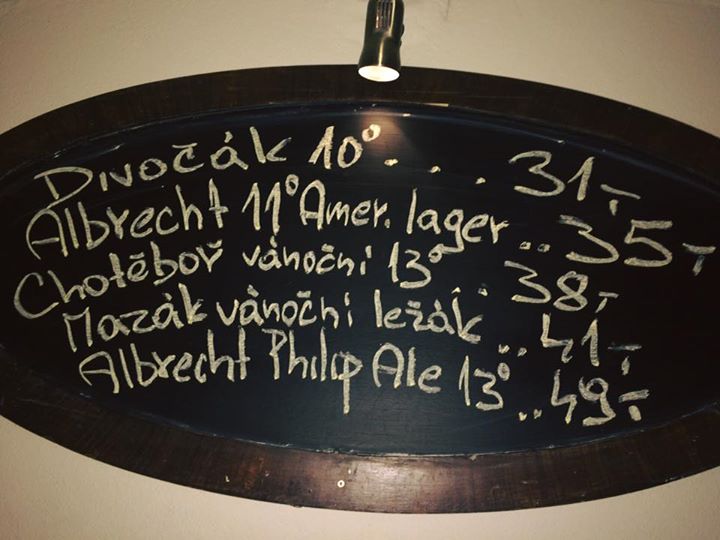 Divočák 10° . . . . 31,-
Albrecht 11° Amer. lager . . 35,-
Chotěboř vánoční 13° . . 38,-
Mazák vánoční ležák . . 41,-
Albrecht Philip Ale 13° . . 49,-